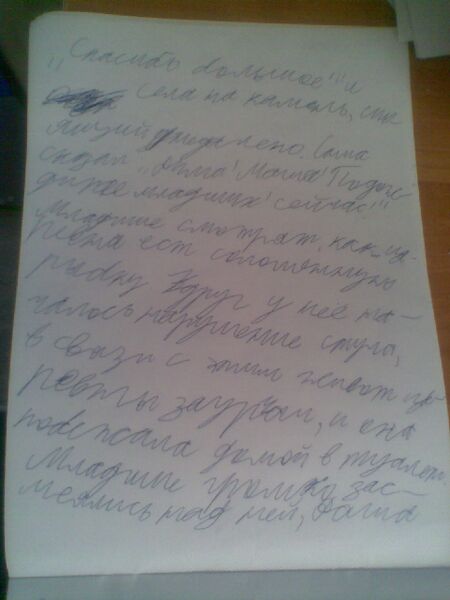 „Спасибо большое!" и
села на камень, сто
ящий недалеко. Сама
сказал „Дима! Маша! Подож
ди же младших! сейчас!"
Младшие смотрят, как ца-
ревна ест соломенную
рыбку. Вдруг у неё на-
чалось нарушение стула,
в связи с этим живот ца-
ревны заурчал, и она
побежала домой в туалет.
Младшие громко зас-
меялись над ней, Даша